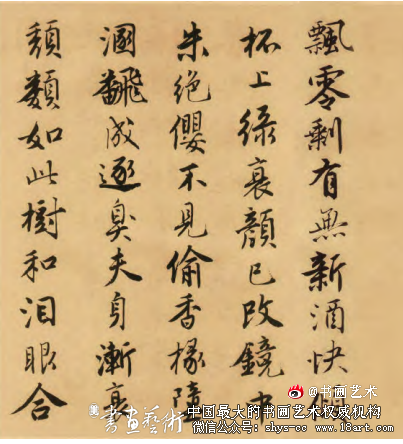 飄零剩有無新酒快傾
杯上緑衰顏已改鏡中
朱絶纓不見偷香椽
溷飜成逐臭夫身漸衰
頹類如此樹和泪眼合
@书画艺术
書畫藝術
中国最大的书画艺术权威机构
微信公众号: shys-cc www.18art.com